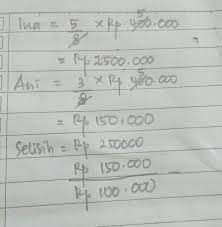 Ina = 5/8 × Rp 400.000
= Rp 2500.000
Ani = 3/8 × Rp 400.000
= Rp 150.000
Selisih = Rp 250000
Rp 150.000
Rp 100.000